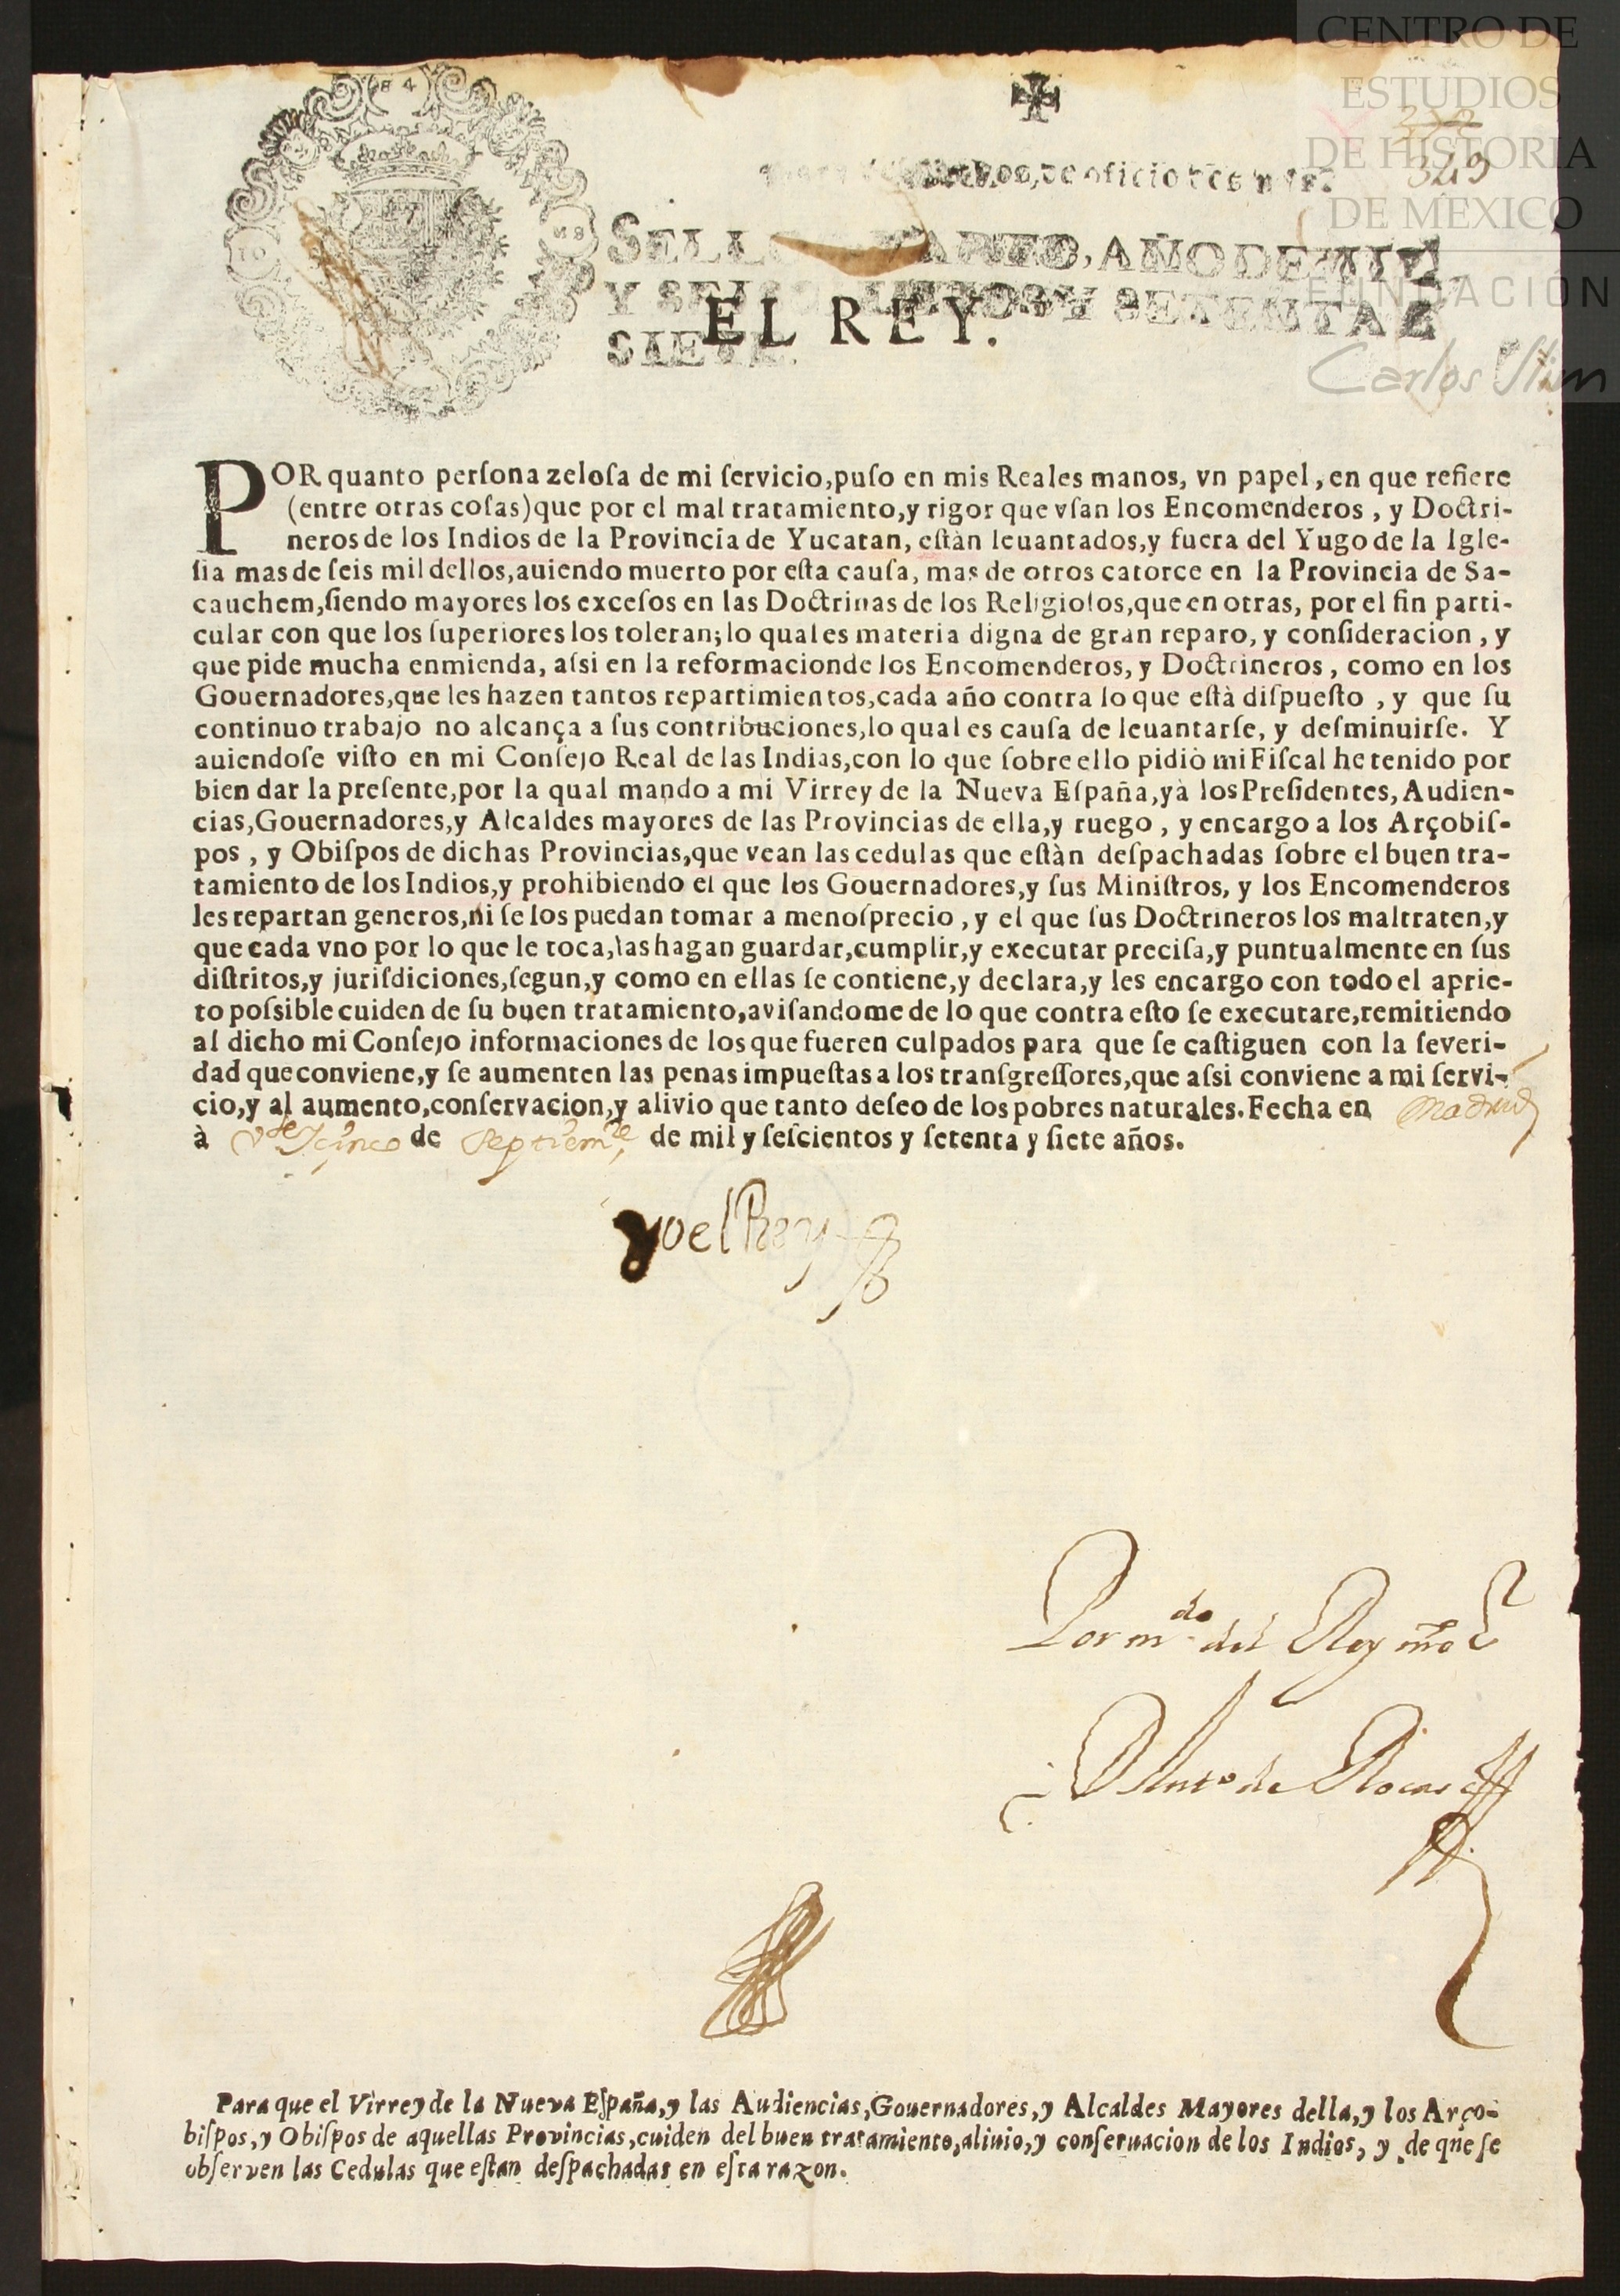 CENTRO DE
ESTUDIOS
DE HISTORIA
DE MEXICO
FUNDACIÓN
Carlos Slim
349
84
10
MS
de oficio
SELLO QVARTO, AÑO DE MIL
Y SEISCIENTOS Y SETENTA E
SIETE.
EL REY.
POR quanto perſona zeloſa de mi ſervicio, puſo en mis Reales manos, vn papel, en que refiere
(entre otras coſas) que por el mal tratamiento, y rigor que vſan los Encomenderos, y Doctri-
neros de los Indios de la Provincia de Yucatan, eſtàn leuantados, y fuera del Yugo de la Igle-
ſia mas de ſeis mil dellos, auiendo muerto por eſta cauſa, mas de otros catorce en la Provincia de Sa-
cauchem, ſiendo mayores los exceſos en las Doctrinas de los Religioſos, que en otras, por el fin parti-
cular con que los ſuperiores los toleran; lo qual es materia digna de gran reparo, y conſideracion, y
que pide mucha enmienda, aſsi en la reformacion de los Encomenderos, y Doctrineros, como en los
Gouernadores, que les hazen tantos repartimientos, cada año contra lo que eſtà diſpueſto, y que ſu
continuo trabajo no alcança a ſus contribuciones, lo qual es cauſa de leuantarſe, y deſminuirſe. Y
auiendoſe viſto en mi Conſejo Real de las Indias, con lo que ſobre ello pidiò mi Fiſcal he tenido por
bien dar la preſente, por la qual mando a mi Virrey de la Nueva Eſpaña, y à los Preſidentes, Audien-
cias, Gouernadores, y Alcaldes mayores de las Provincias de ella, y ruego, y encargo a los Arçobiſ-
pos, y Obiſpos de dichas Provincias, que vean las cedulas que eſtàn deſpachadas ſobre el buen tra-
tamiento de los Indios, y prohibiendo el que los Gouernadores, y ſus Miniſtros, y los Encomenderos
les repartan generos, ni ſe los puedan tomar a menoſprecio, y el que ſus Doctrineros los maltraten, y
que cada vno por lo que le toca, las hagan guardar, cumplir, y executar preciſa, y puntualmente en ſus
diſtritos, y juriſdiciones, ſegun, y como en ellas ſe contiene, y declara, y les encargo con todo el aprie-
to poſsible cuiden de ſu buen tratamiento, aviſandome de lo que contra eſto ſe executare, remitiendo
al dicho mi Conſejo informaciones de los que fueren culpados para que ſe caſtiguen con la ſeveri-
dad que conviene, y ſe aumenten las penas impueſtas a los tranſgreſſores, que aſsi conviene a mi ſervi-
cio, y al aumento, conſervacion, y alivio que tanto deſeo de los pobres naturales. Fecha en Madrid
à Vte y cinco de Septiemre de mil y ſeſcientos y ſetenta y ſiete años.
yo el Rey
Por mdo del Rey nro Sr
D Anto de Rocas
Para que el Virrey de la Nueva Eſpaña, y las Audiencias, Gouernadores, y Alcaldes Mayores della, y los Arço-
biſpos, y Obiſpos de aquellas Provincias, cuiden del buen tratamiento, aliuio, y conſeruacion de los Indios, y de que ſe
obſerven las Cedulas que eſtan deſpachadas en eſta razon.